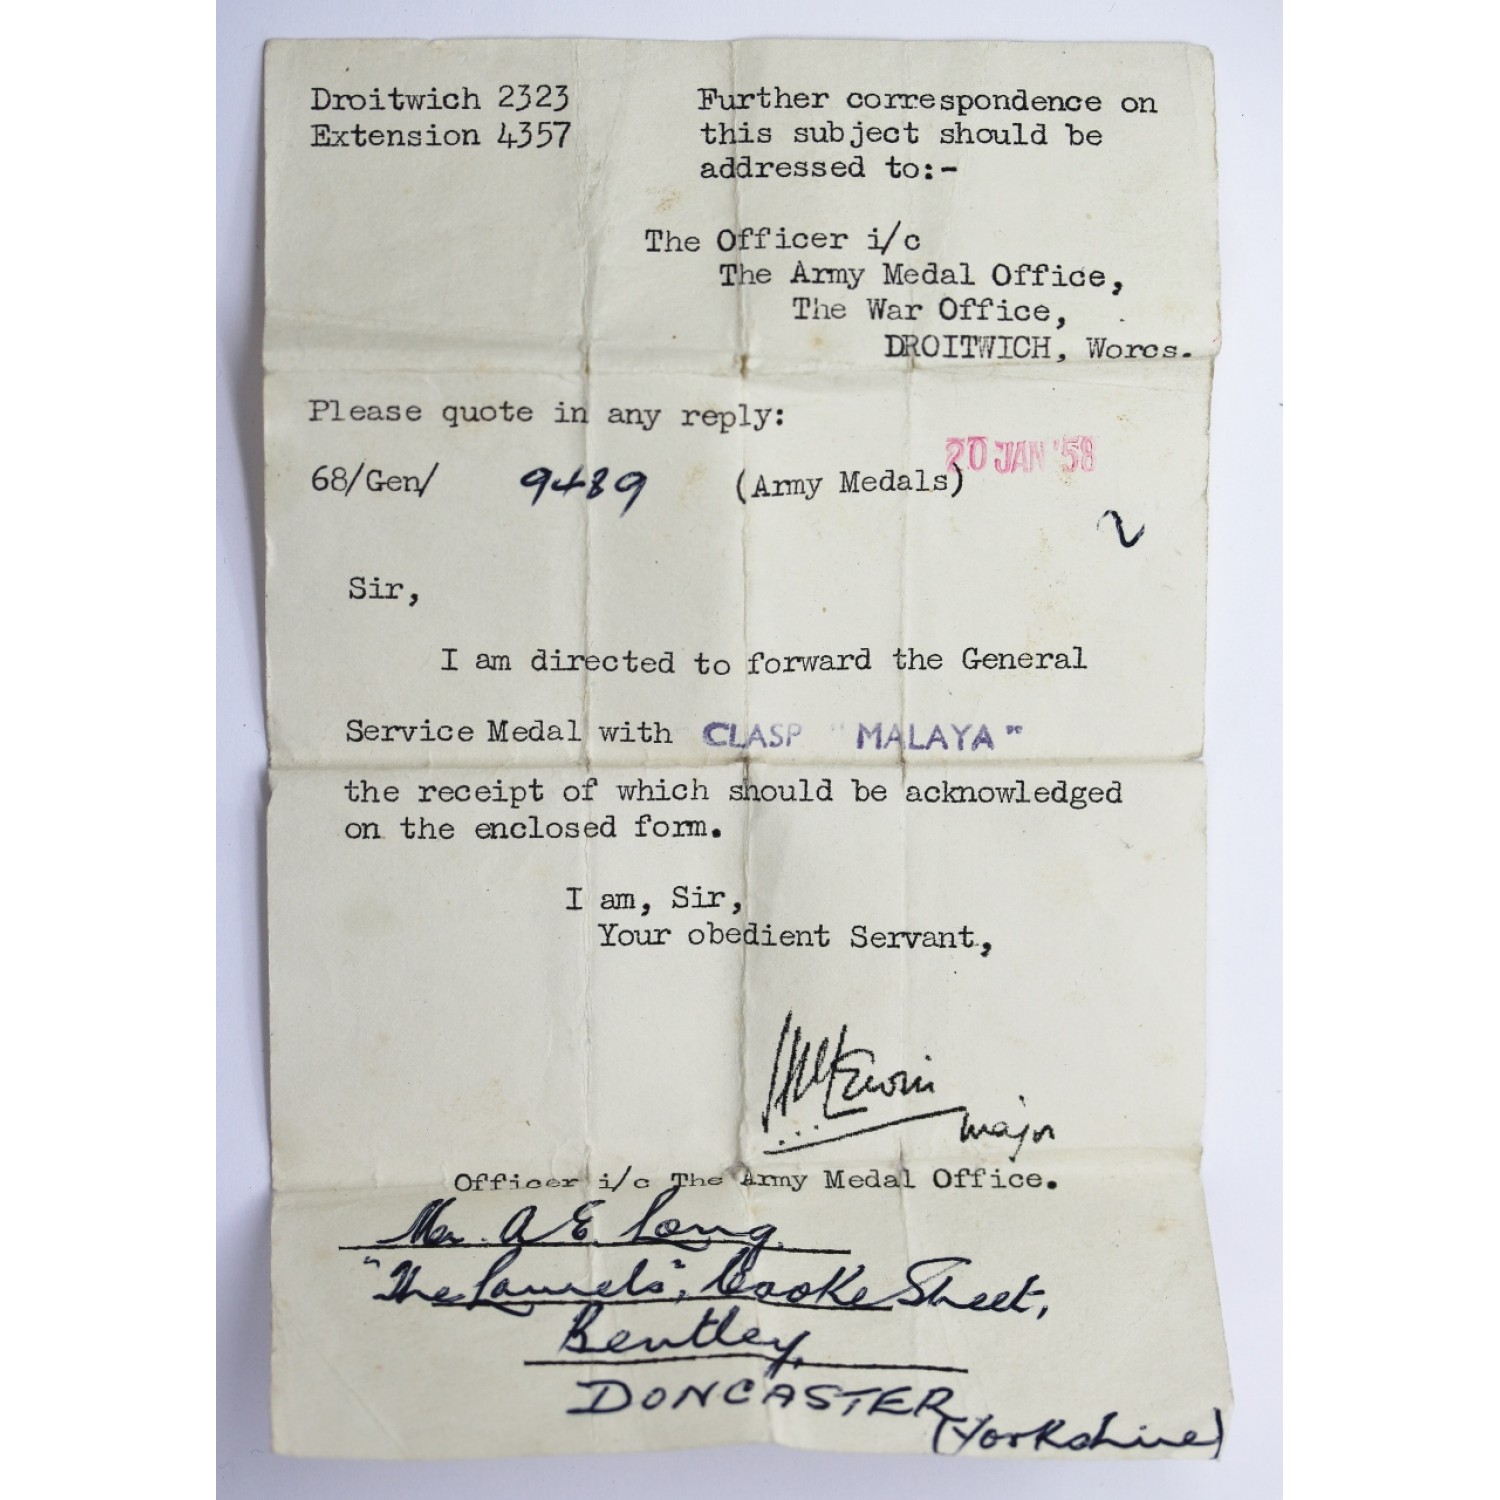 Droitwich 2323
Extension 4357
Further correspondence on
this subject should be
addressed to:-
The Officer i/c
The Army Medal Office,
The War Office,
DROITWICH, Worcs.
Please quote in any reply:
20 JAN '58
68/Gen/ 9489 (Army Medals)
2
Sir,
I am directed to forward the General
Service Medal with CLASP "MALAYA"
the receipt of which should be acknowledged
on the enclosed form.
I am, Sir,
Your obedient Servant,
Major
Officer i/c The Army Medal Office.
Mr. A E. Long.
"The Laurels", Cooke Street,
Bentley,
DONCASTER
(Yorkshire)